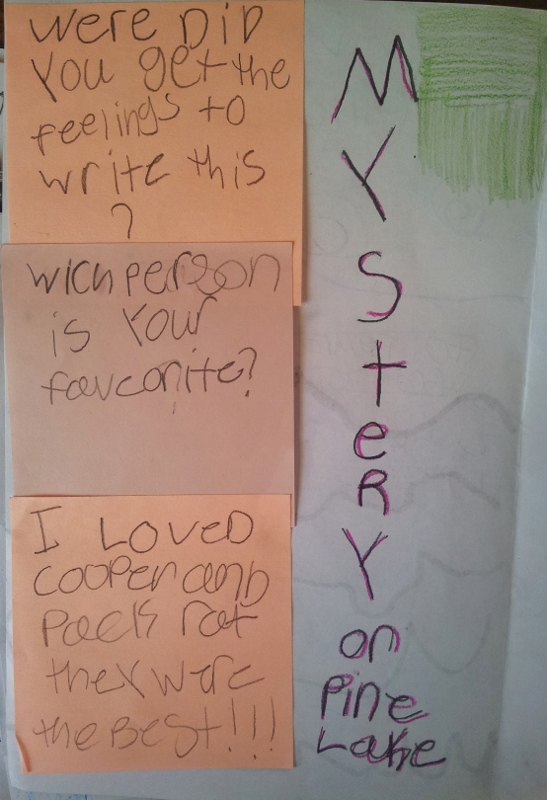 Were DiD
You get the
feelings to
write this
?
wich person
is Your
favconite?
I LOVED
cooper and
Pack rat
they were
the Best!!!
MYSteRY
on
Pine
Lake